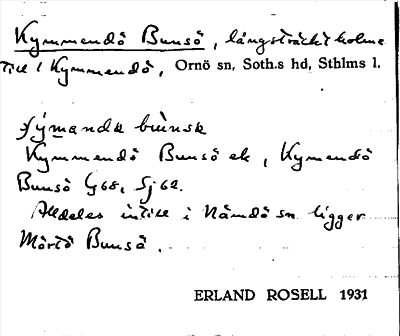 Kymmendö Bunsö, långsträckt holme
till i Kymmendö, Ornö sn, Soth.s hd, Sthlms l.
Kymmendö Bunsö ek, Kymendö
Bunsö G68, Sj 62.
Alldeles intill i Nämdö sn ligger
Mörtö Bunsö.
ERLAND ROSELL 1931